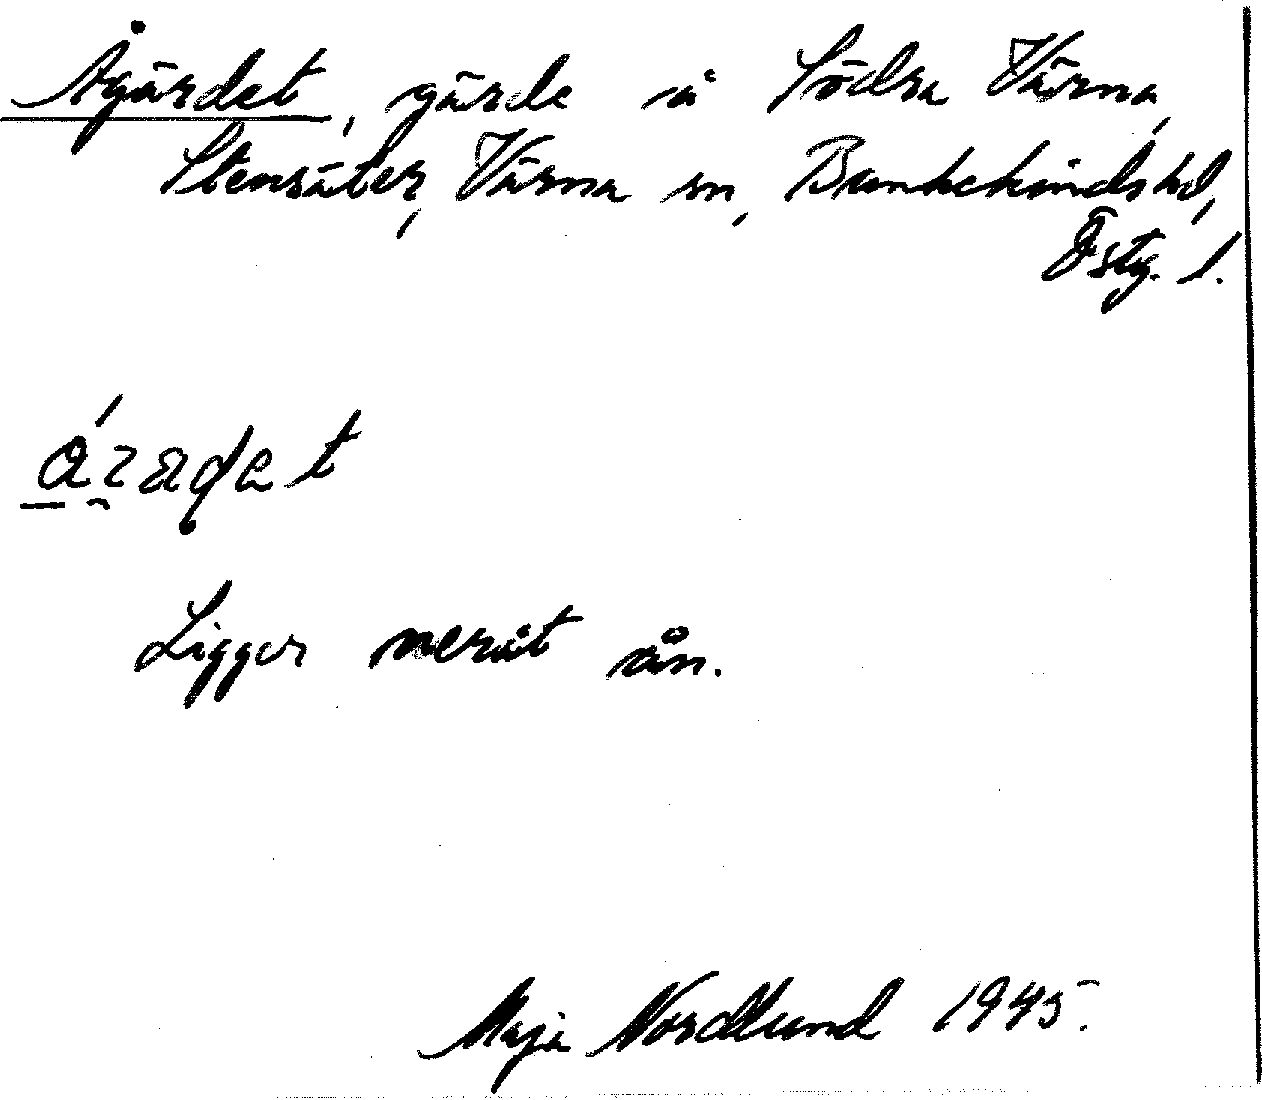 Ågärdet, gärde å Södra Värna,
Stensäter, Värna sn, Bankekinds hd,
Östg. l.
Ligger neråt ån.
Maja Nordlund 1945.